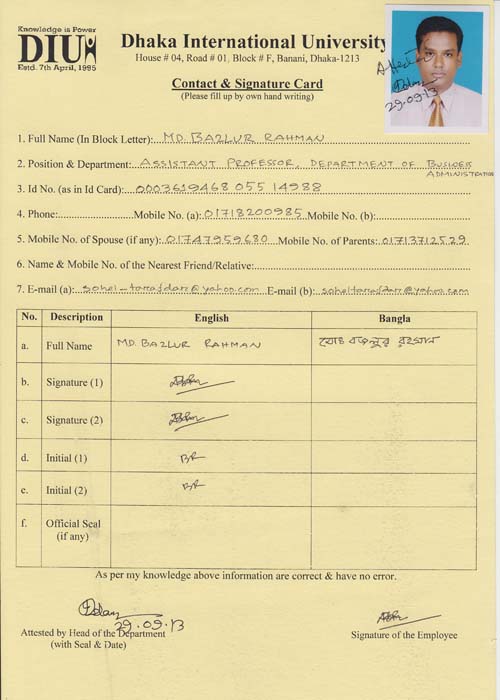 Knowledge is Power
DIU
Estd. 7th April, 1995
Dhaka International University
House # 04, Road # 01, Block # F, Banani, Dhaka-1213
Contact & Signature Card
(Please fill up by own hand writing)
Attested
29.09.13
1. Full Name (In Block Letter): MD. BAZLUR RAHMAN
2. Position & Department: ASSISTANT PROFESSOR, DEPARTMENT OF BUSINESS ADMINISTRATION
3. Id No. (as in Id Card): 0003619468 055 14988
4. Phone: Mobile No. (a): 01718200985 Mobile No. (b):
5. Mobile No. of Spouse (if any): 01747959680 Mobile No. of Parents: 01713712529
6. Name & Mobile No. of the Nearest Friend/Relative:
7. E-mail (a): sohel_tarafdarr@yahoo.com E-mail (b): soheltarafdarr@yahoo.com
No. Description English Bangla
a. Full Name MD. BAZLUR RAHMAN মোঃ বজলুর রহমান
b. Signature (1)
c. Signature (2)
d. Initial (1) BR
e. Initial (2) BR
f. Official Seal
(if any)
As per my knowledge above information are correct & have no error.
29.09.13
Attested by Head of the Department Signature of the Employee
(with Seal & Date)